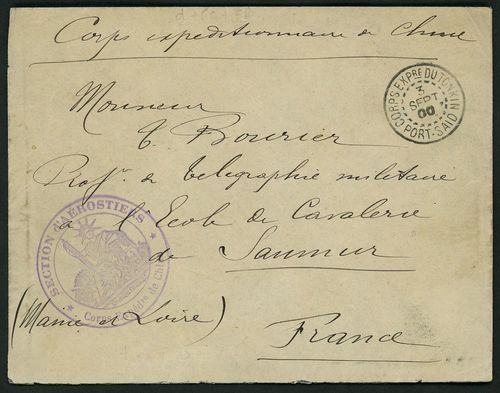 Corps expeditionnaire de Chine
CORPS EXPRE DU TONKIN
3
SEPT
00
PORT-SAID
Monsieur
Bourier
Profr de telegraphie militaire
a l'Ecole de Cavalerie
de Saumur
SECTION D'AEROSTIERS
Corps de Chi
(Maine et Loire)
France